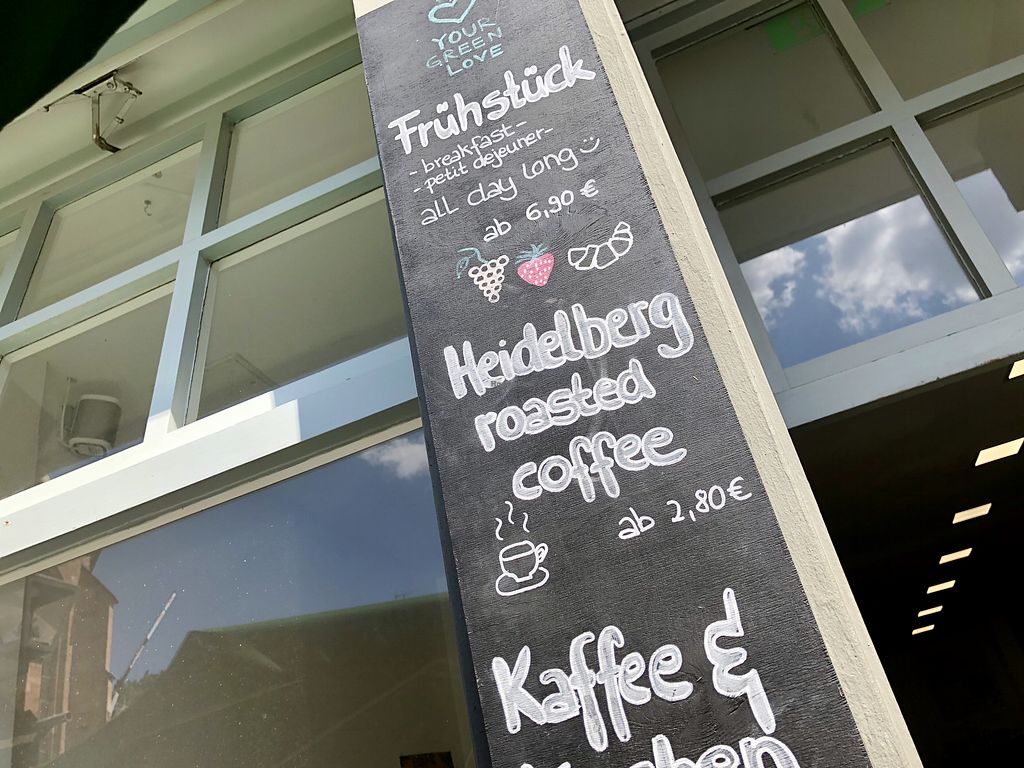 YOUR
GREEN
LOVE
Frühstück
- breakfast -
- petit dejeuner -
all day long
ab 6,90 €
Heidelberg
roasted
coffee
ab 2,80 €
Kaffee &